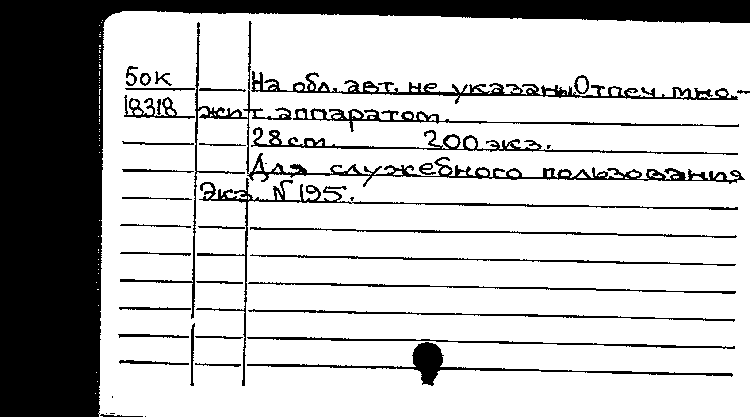 50к На обл. авт. не указаны Отпеч. мно-
18318 жит. аппаратом.
28 cm. 200 экз.
Для служебного пользования
Экз. N 195.